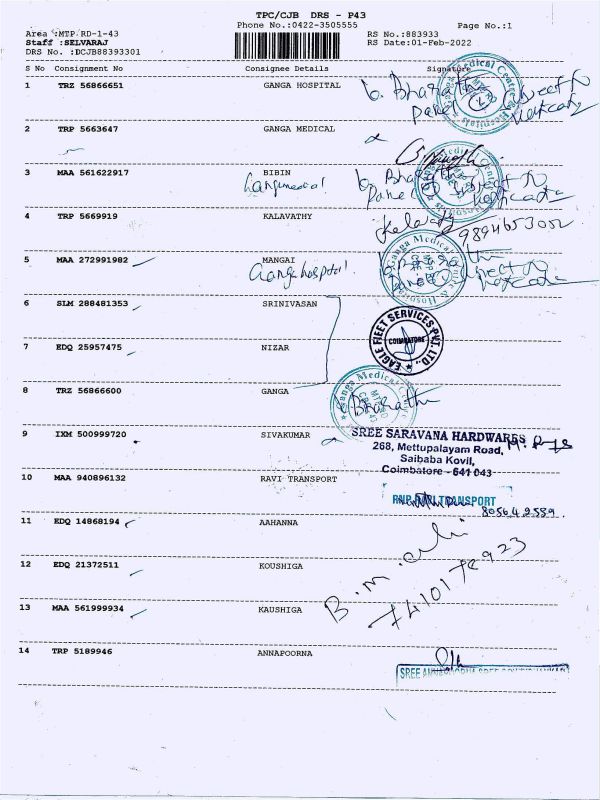 TPC/CJB DRS - P43
Phone No.:0422-3505555
Page No.:1
Area :MTP RD-1-43
RS No.:883933
Staff :SELVARAJ
RS Date:01-Feb-2022
DRS No. :DCJB88393301
S No Consignment No Consignee Details Signature
1 TRZ 56866651 GANGA HOSPITAL
2 TRP 5663647 GANGA MEDICAL
3 MAA 561622917 BIBIN
Gangamedical
4 TRP 5669919 KALAVATHY
Kalavathy 9894653002
5 MAA 272991982 MANGAI
Ganga hospital
6 SLM 288481353 SRINIVASAN
EAGLE FLEET SERVICES PVT. LTD.,
COIMBATORE
7 EDQ 25957475 NIZAR
8 TRZ 56866600 GANGA
Bharathi
9 IXM 500999720 SIVAKUMAR
SREE SARAVANA HARDWARES
268, Mettupalayam Road,
Saibaba Kovil,
Coimbatore - 641 043
10 MAA 940896132 RAVI TRANSPORT
TRANSPORT
11 EDQ 14868194 AAHANNA
12 EDQ 21372511 KOUSHIGA
B.m.
13 MAA 561999934 KAUSHIGA
14 TRP 5189946 ANNAPOORNA
SREE